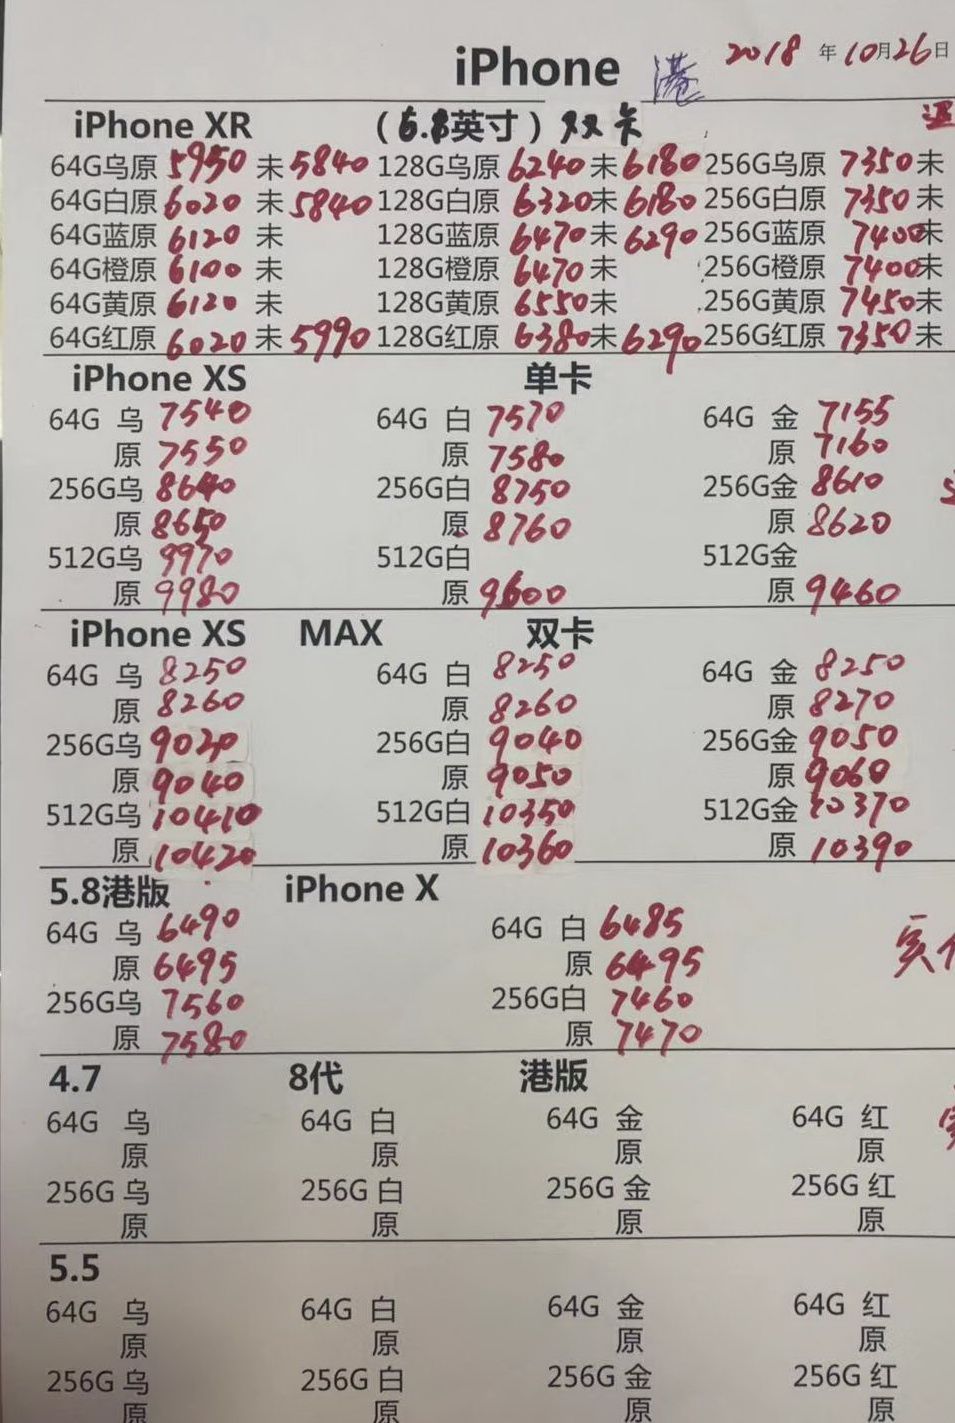 iPhone 港 2018 年 10月26日
iPhone XR （6.8英寸）双卡
64G乌原 5950 未 5840 128G乌原 6240 未 6180 256G乌原 7350 未
64G白原 6020 未 5840 128G白原 6320 未 6180 256G白原 7350 未
64G蓝原 6120 未 128G蓝原 6470 未 6290 256G蓝原 7400 未
64G橙原 6100 未 128G橙原 6470 未 256G橙原 7400 未
64G黄原 6120 未 128G黄原 6550 未 256G黄原 7450 未
64G红原 6020 未 5990 128G红原 6380 未 6290 256G红原 7350 未
iPhone XS 单卡
64G 乌 7540 64G 白 7570 64G 金 7155
原 7550 原 7580 原 7160
256G乌 8640 256G白 8750 256G金 8610
原 8650 原 8760 原 8620
512G乌 9970 512G白 512G金
原 9980 原 9600 原 9460
iPhone XS MAX 双卡
64G 乌 8250 64G 白 8250 64G 金 8250
原 8260 原 8260 原 8270
256G乌 9020 256G白 9040 256G金 9050
原 9040 原 9050 原 9060
512G乌 10410 512G白 10350 512G金 10370
原 10420 原 10360 原 10390
5.8港版 iPhone X
64G 乌 6490 64G 白 6485
原 6495 原 6495
256G乌 7560 256G白 7460
原 7580 原 7470
4.7 8代 港版
64G 乌 64G 白 64G 金 64G 红
原 原 原 原
256G 乌 256G 白 256G 金 256G 红
原 原 原 原
5.5
64G 乌 64G 白 64G 金 64G 红
原 原 原 原
256G 乌 256G 白 256G 金 256G 红
原 原 原 原